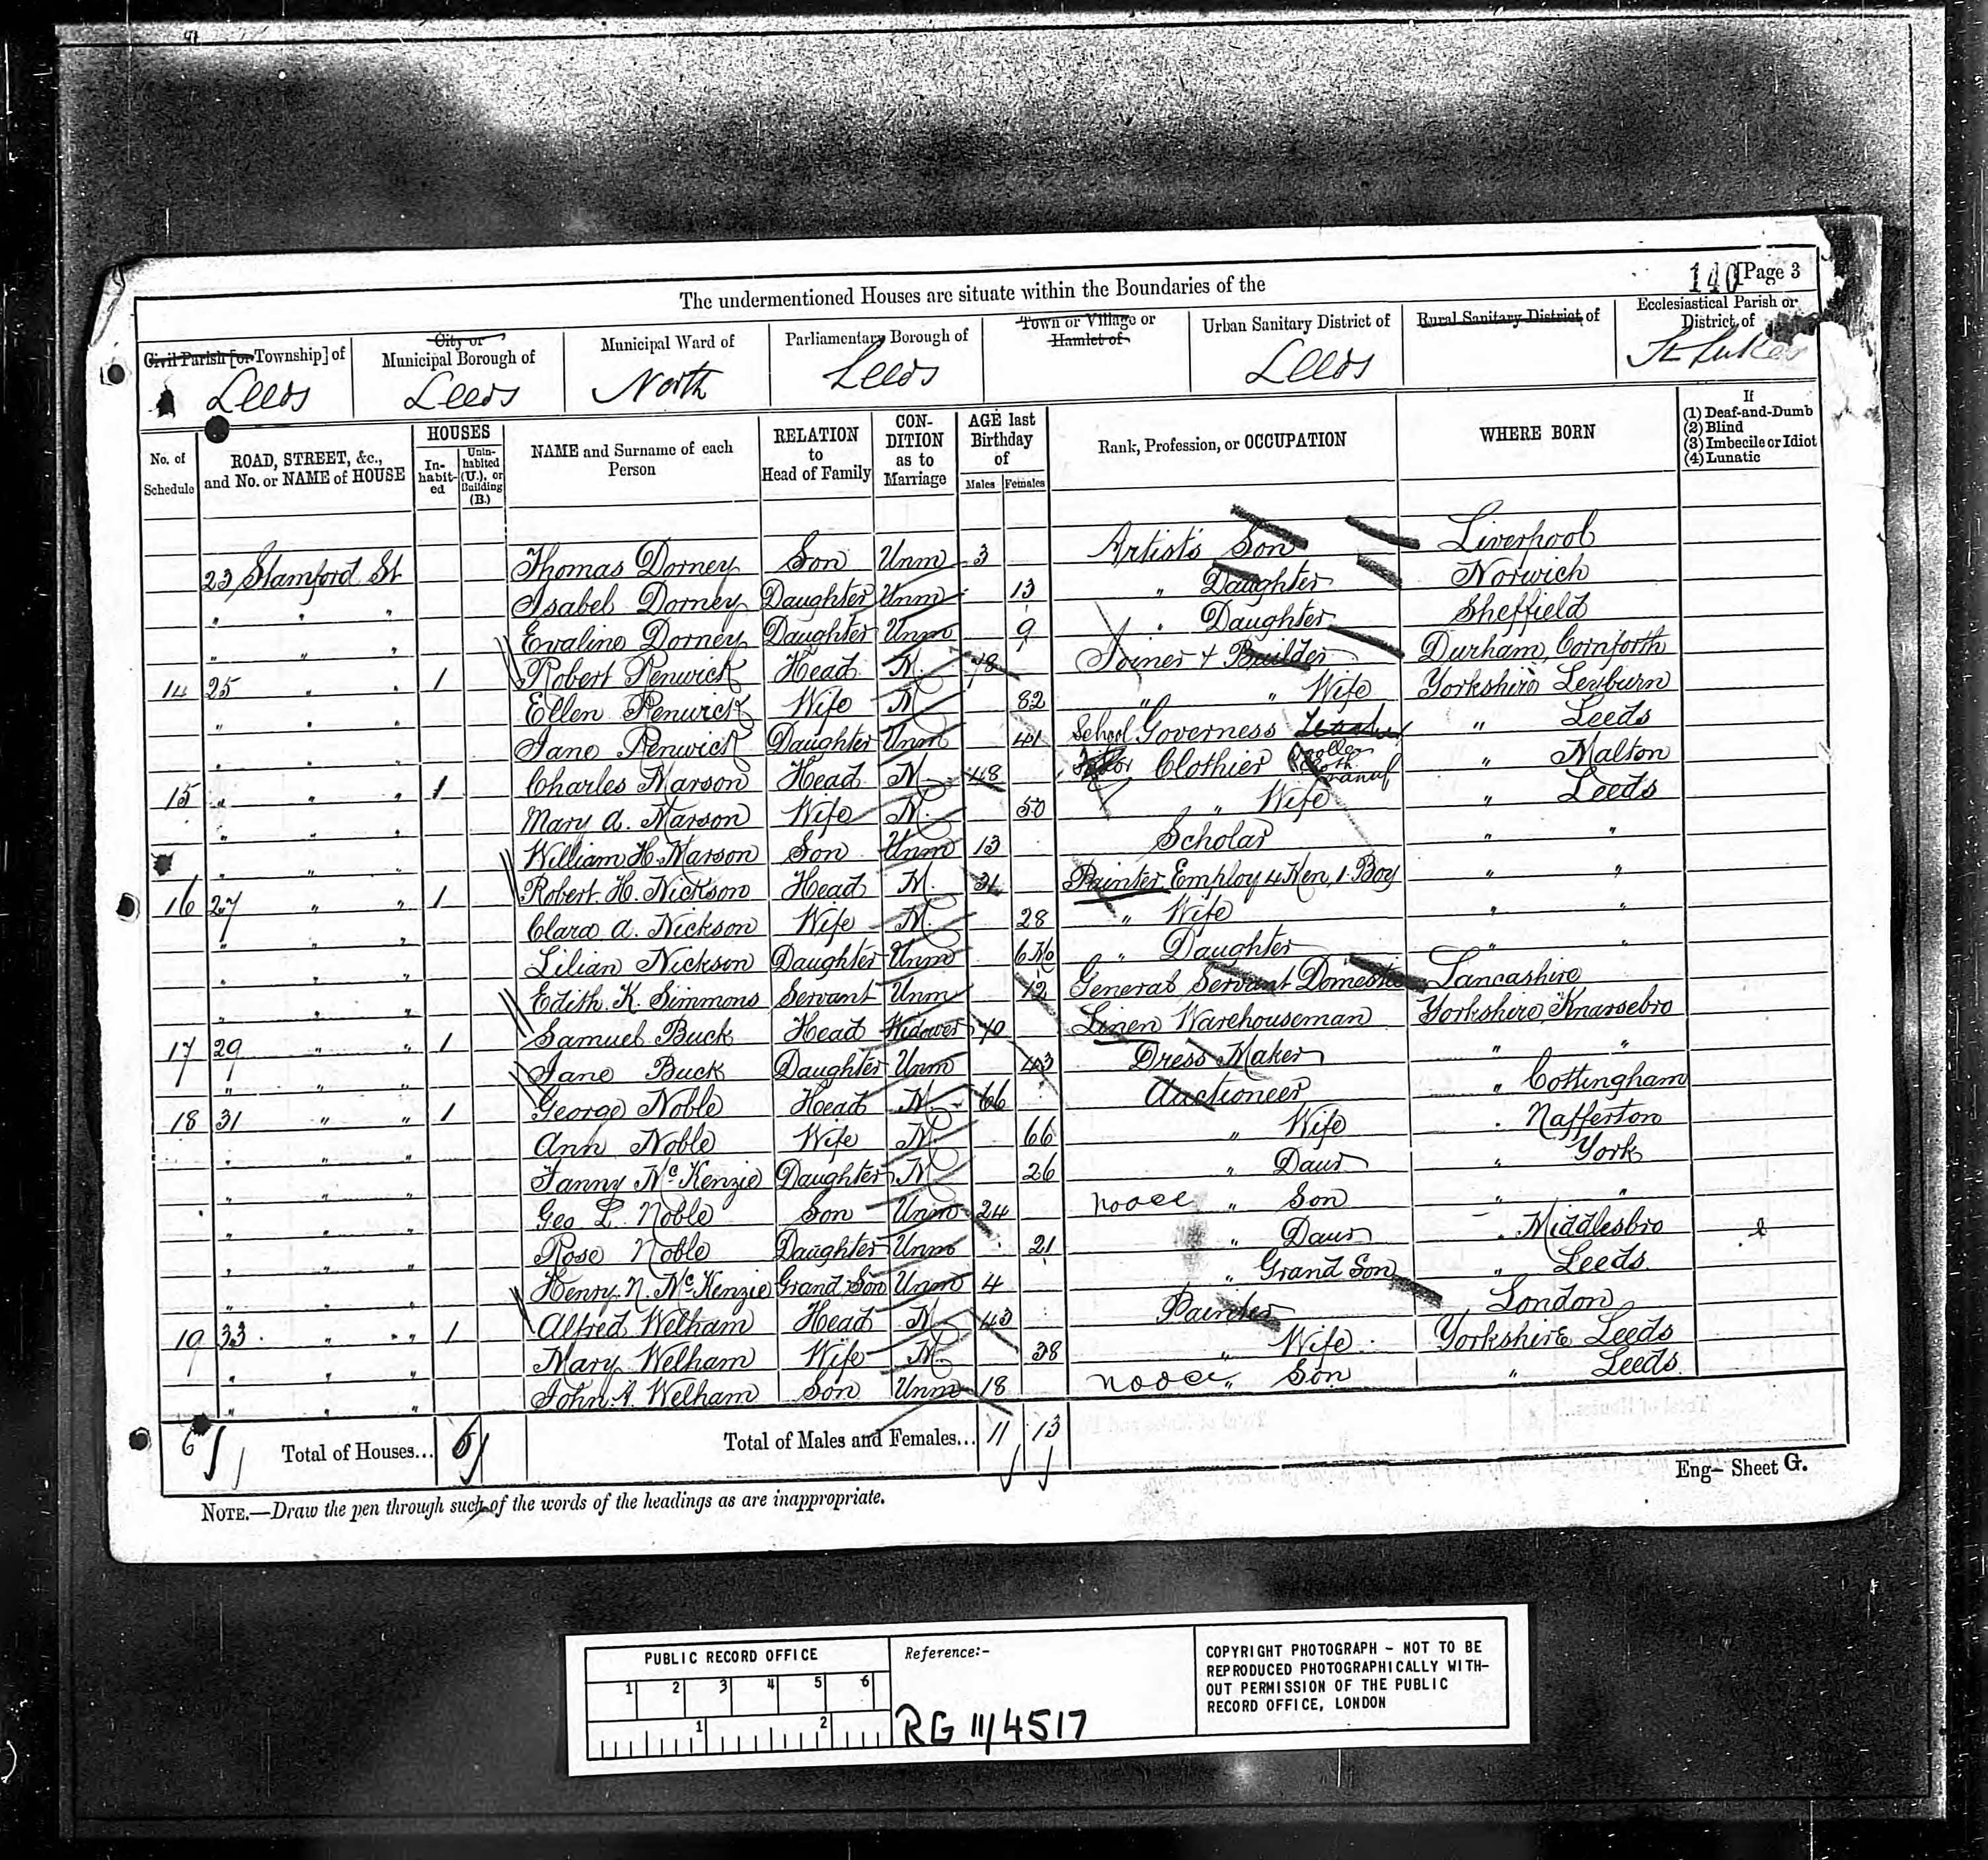 140 [Page 3
The undermentioned Houses are situate within the Boundaries of the
Civil Parish [or Township] of | City or Municipal Borough of | Municipal Ward of | Parliamentary Borough of | Town or Village or Hamlet of | Urban Sanitary District of | Rural Sanitary District of | Ecclesiastical Parish or District of
Leeds | Leeds | North | Leeds | | Leeds | | St Lukes
No. of Schedule | ROAD, STREET, &c., and No. or NAME of HOUSE | HOUSES Inhabited | Uninhabited (U.), or Building (B.) | NAME and Surname of each Person | RELATION to Head of Family | CONDITION as to Marriage | AGE last Birthday of Males | Females | Rank, Profession, or OCCUPATION | WHERE BORN | If (1) Deaf-and-Dumb (2) Blind (3) Imbecile or Idiot (4) Lunatic
23 Stamford St Thomas Dorney Son Unm 3 Artist's Son Liverpool
" " " Isabel Dorney Daughter Unm 13 " Daughter Norwich
" " " Evaline Dorney Daughter Unm 9 " Daughter Sheffield
14 25 " " 1 Robert Renwick Head M. 78 Joiner & Builder Durham, Cornforth
" " " Ellen Renwick Wife M 82 " " Wife Yorkshire Leyburn
" " " Jane Renwick Daughter Unm 41 School Governess Teacher " Leeds
15 " " " 1 Charles Marson Head M 48 Tailor Clothier Woollen Cloth manuf " Malton
" " " Mary A. Marson Wife M. 50 " Wife " Leeds
" " " William H. Marson Son Unm 13 Scholar " "
16 27 " " 1 Robert H. Nickson Head M. 31 Painter Employ 4 Men, 1 Boy " "
" " " Clara A. Nickson Wife M. 28 " Wife " "
" " " Lilian Nickson Daughter Unm 6 Mo " Daughter " "
" " " Edith K. Simmons Servant Unm 12 General Servant Domestic Lancashire
17 29 " " 1 Samuel Buck Head Widower 70 Linen Warehouseman Yorkshire, Knarsebro
" " " Jane Buck Daughter Unm 43 Dress Maker " "
18 31 " " 1 George Noble Head M 66 Auctioneer " Cottingham
" " " Ann Noble Wife M 66 " Wife " Nafferton
" " " Fanny McKenzie Daughter M 26 " Daur " York
" " " Geo L. Noble Son Unm 24 no occ " Son " "
" " " Rose Noble Daughter Unm 21 " Daur " Middlesbro
" " " Henry N. McKenzie Grand Son Unm 4 " Grand Son " Leeds
19 33 " " 1 Alfred Welham Head M 43 Painter London
" " " Mary Welham Wife M 38 " Wife Yorkshire Leeds
" " " John A. Welham Son Unm 18 no occ " Son " Leeds
6 Total of Houses... 6 Total of Males and Females... 11 13
Eng- Sheet G.
NOTE.—Draw the pen through such of the words of the headings as are inappropriate.
PUBLIC RECORD OFFICE
1 2 3 4 5 6
1 2
Reference:-
RG 11/4517
COPYRIGHT PHOTOGRAPH - NOT TO BE
REPRODUCED PHOTOGRAPHICALLY WITH-
OUT PERMISSION OF THE PUBLIC
RECORD OFFICE, LONDON